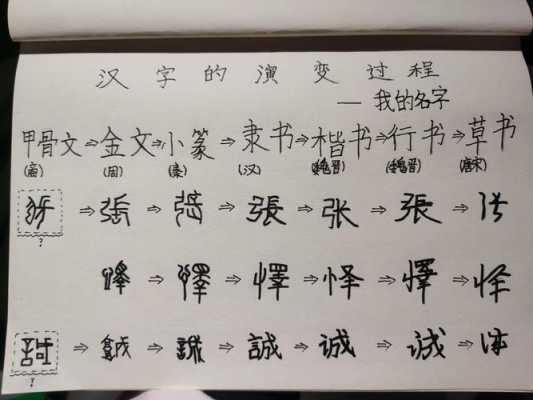 汉字的演变过程
— 我的名字
甲骨文⇒金文⇒小篆⇒隶书⇒楷书⇒行书⇒草书
(商) (周) (秦) (汉) (魏晋) (魏晋) (唐宋)
⇒張⇒張⇒張⇒张⇒張⇒张
?
懌⇒懌⇒懌⇒怿⇒懌⇒怿
⇒誠⇒誠⇒誠⇒诚⇒诚⇒诚
?